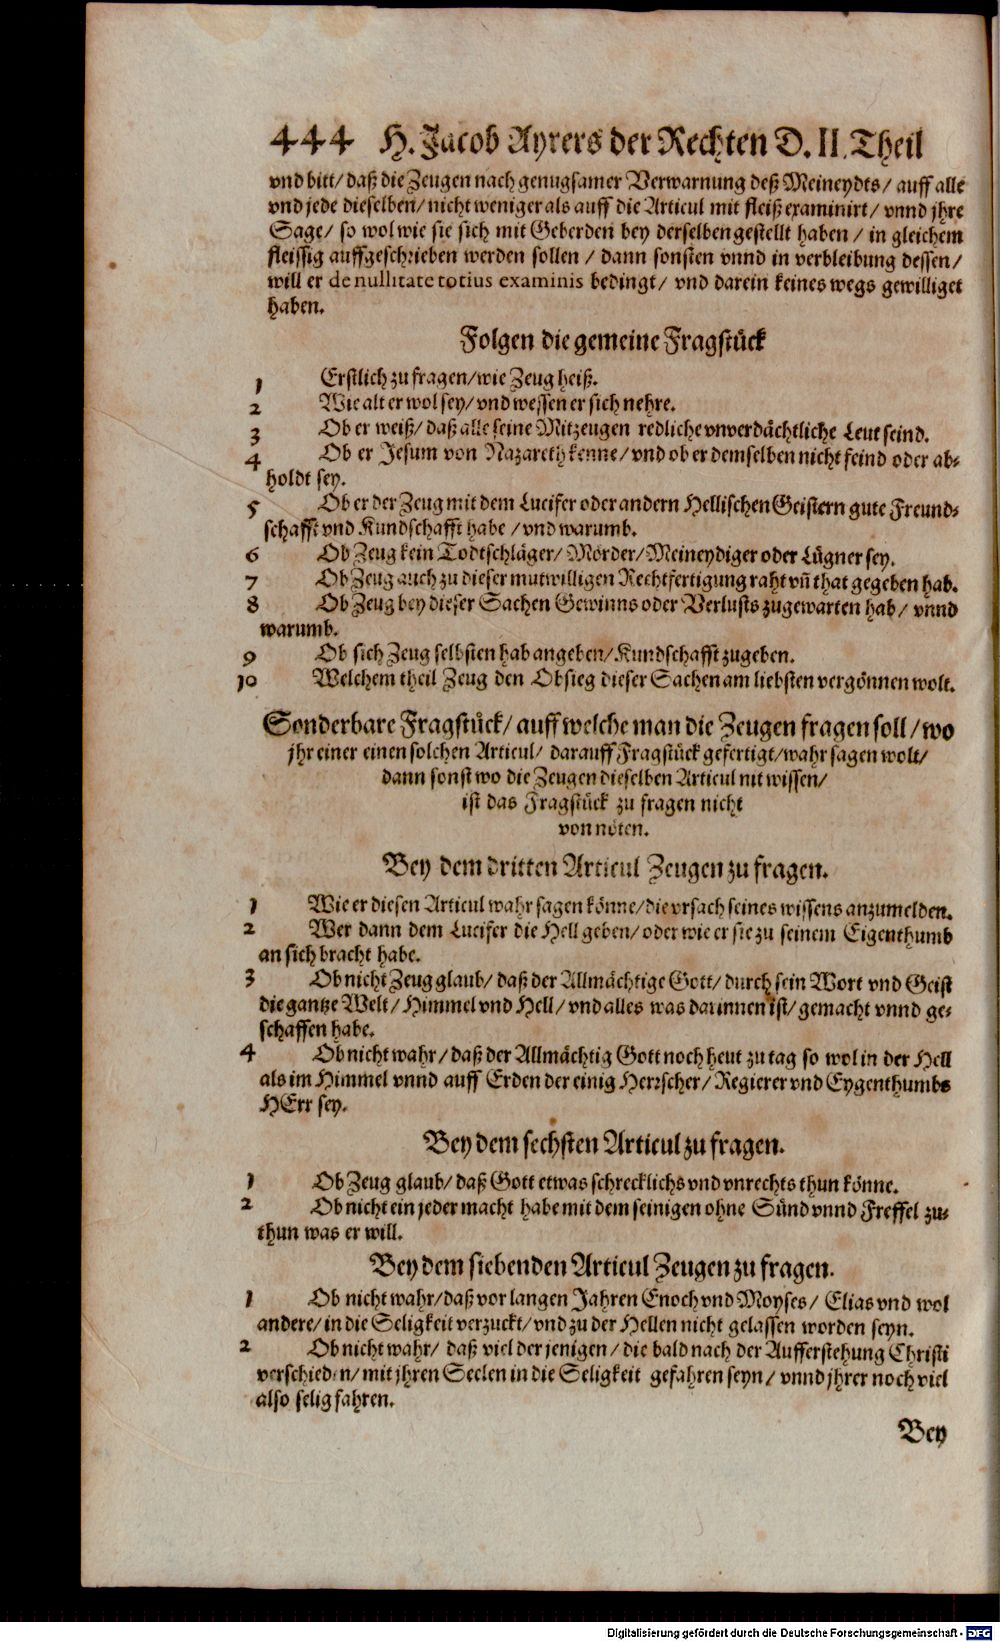 444 H. Jacob Ayrers der Rechten D. II. Theil
vnd bitt/ daß die Zeugen nach genugsamer Verwarnung deß Meineydts/ auff alle
vnd jede dieselben/ nicht weniger als auff die Articul mit fleiß examinirt/ vnnd jhre
Sage/ so wol wie sie sich mit Geberden bey derselben gestellt haben / in gleichem
fleissig auffgeschrieben werden sollen / dann sonsten vnnd in verbleibung dessen/
will er de nullitate totius examinis bedingt/ vnd darein keines wegs gewilliget
haben.
Folgen die gemeine Fragstück
1 Erstlich zu fragen/wie Zeug heiß.
2 Wie alt er wol sey/ vnd wessen er sich nehre.
3 Ob er weiß/ daß alle seine Mitzeugen redliche vnverdächtliche Leut seind.
4 Ob er Jesum von Nazareth kenne/ vnd ob er demselben nicht feind oder ab-
holdt sey.
5 Ob er der Zeug mit dem Lucifer oder andern Hellischen Geistern gute Freund-
schafft vnd Kundschafft habe / vnd warumb.
6 Ob Zeug kein Todtschläger/ Mörder/ Meineydiger oder Lügner sey.
7 Ob Zeug auch zu dieser mutwilligen Rechtfertigung raht vñ that gegeben hab.
8 Ob Zeug bey dieser Sachen Gewinns oder Verlusts zugewarten hab/ vnnd
warumb.
9 Ob sich Zeug selbsten hab angeben/ Kundschafft zugeben.
10 Welchem theil Zeug den Obsieg dieser Sachen am liebsten vergönnen wolt.
Sonderbare Fragstück/ auff welche man die Zeugen fragen soll/ wo
jhr einer einen solchen Articul/ darauff Fragstück gefertigt/wahr sagen wolt/
dann sonst wo die Zeugen dieselben Articul nit wissen/
ist das Fragstück zu fragen nicht
von nöten.
Bey dem dritten Articul Zeugen zu fragen.
1 Wie er diesen Articul wahr sagen könne/ die vrsach seines wissens anzumelden.
2 Wer dann dem Lucifer die Hell geben/ oder wie er sie zu seinem Eigenthumb
an sich bracht habe.
3 Ob nicht Zeug glaub/ daß der Allmächtige Gott/ durch sein Wort vnd Geist
die gantze Welt/ Himmel vnd Hell/ vnd alles was darinnen ist/ gemacht vnnd ge-
schaffen habe.
4 Ob nicht wahr/ daß der Allmächtig Gott noch heut zu tag so wol in der Hell
als im Himmel vnnd auff Erden der einig Herrscher/ Regierer vnd Eygenthumbs
HErr sey.
Bey dem sechsten Articul zu fragen.
1 Ob Zeug glaub/ daß Gott etwas schrecklichs vnd vnrechts thun könne.
2 Ob nicht ein jeder macht habe mit dem seinigen ohne Sünd vnnd Freffel zu-
thun was er will.
Bey dem siebenden Articul Zeugen zu fragen.
1 Ob nicht wahr/daß vor langen Jahren Enoch vnd Moyses/ Elias vnd wol
andere/ in die Seligkeit verzuckt/ vnd zu der Hellen nicht gelassen worden seyn.
2 Ob nicht wahr/ daß viel der jenigen/ die bald nach der Aufferstehung Christi
verschieden/ mit jhren Seelen in die Seligkeit gefahren seyn/ vnnd jhrer noch viel
also selig fahren.
Bey
Digitalisierung gefördert durch die Deutsche Forschungsgemeinschaft - DFG